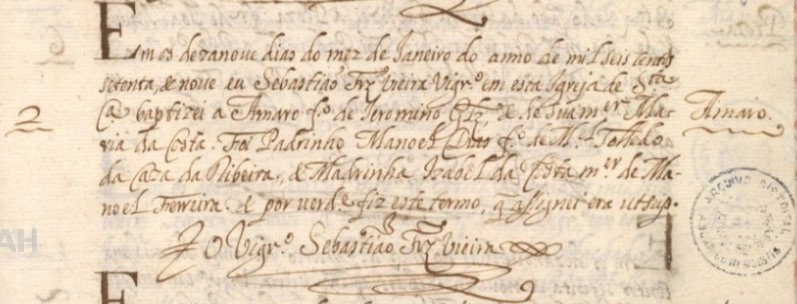 Em os dezanove dias do mez de Janeiro do anno de mil seis centos
setenta, & nove eu Sebastião Frz Vieira Vigr.º em esta Igreja de Sta
Cª baptizei a Amaro f.º de Jeronimo Glz, & de sua m.er Ma-
2
Amaro.
ria da Costa. Foi Padrinho Manoel Dias f.º de M.el Toledo
da Caza da Ribeira, & Madrinha Izabel da Costa m.er de Ma-
noel Ferreira & por verd.e fiz este termo, q assignei era ut sup.
O Vigr.º Sebastião Frz Vieira